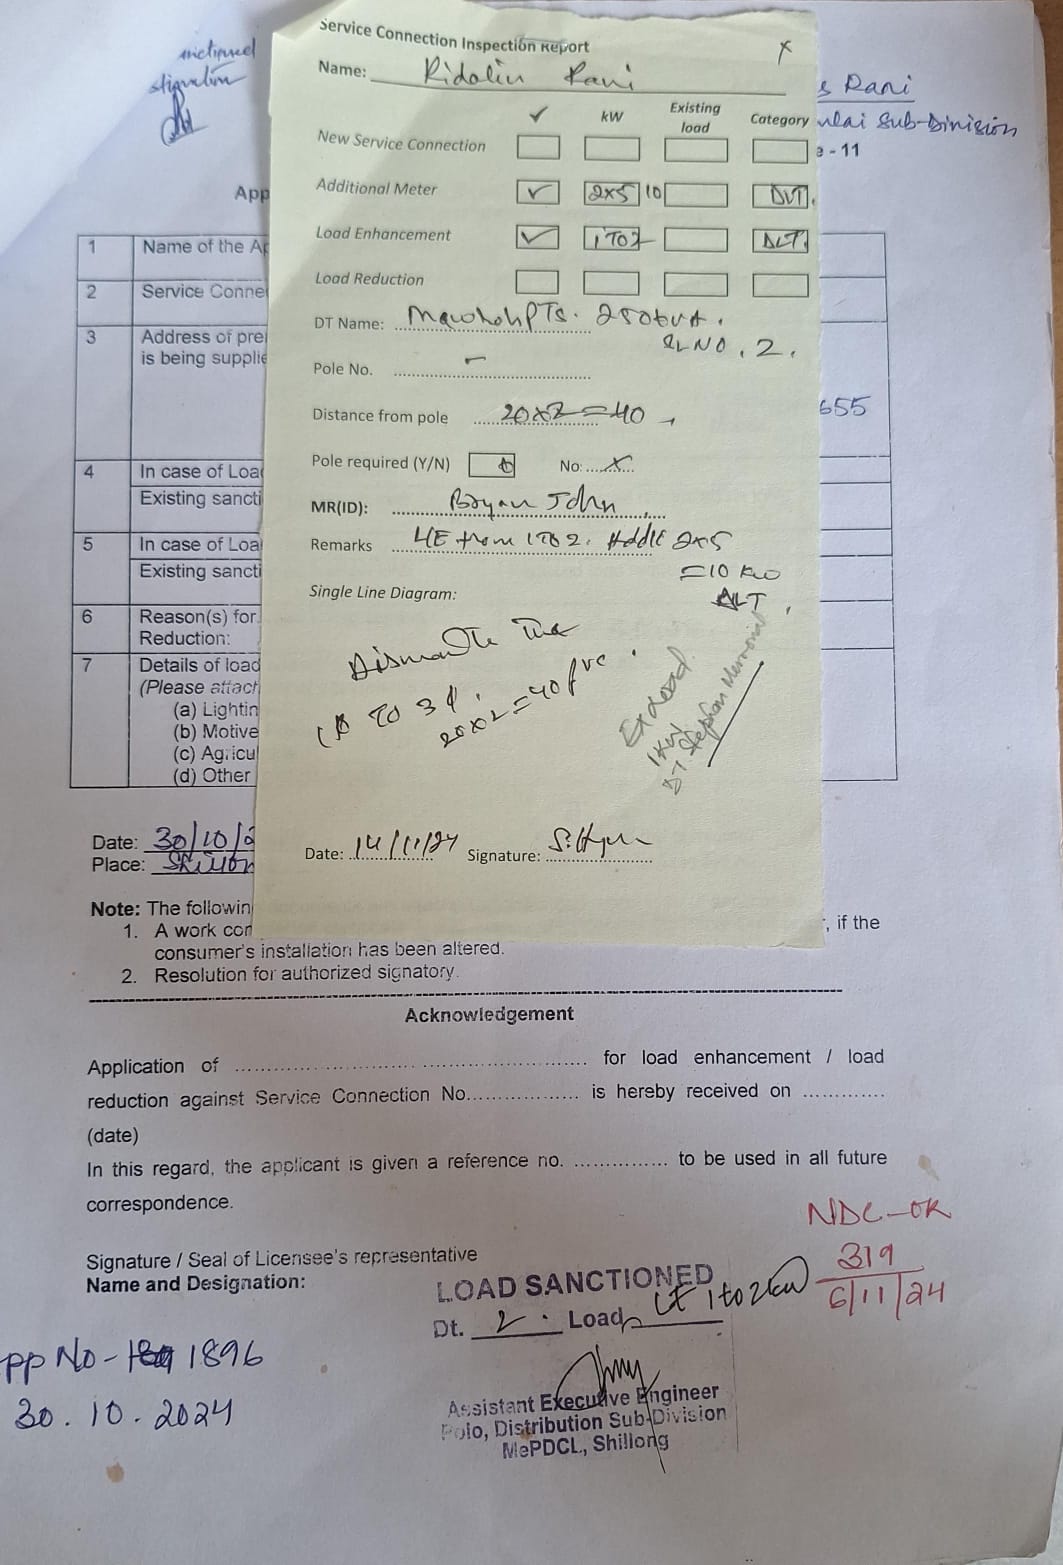 Service Connection Inspection Report
Name: Ridalin Rani
✓ kW Existing load Category
New Service Connection
Additional Meter ✓ 2x5 10
Load Enhancement ✓ 1 TO 2 DLT
Load Reduction
DT Name: 250kVA.
SL NO. 2.
Pole No. –
Distance from pole 20x2=40
Pole required (Y/N) No: x
MR(ID): Bryan John
Remarks LE from 1 TO 2. Addl 2x5
=10 kw
DLT
Single Line Diagram:
Dismantle the
1ϕ TO 3ϕ.
20x2=40 pvc
Ex load
1kw
DT Stephan Memorial
Date: 14/11/24 Signature:
s Rani
Sub-Division
- 11
App
1 Name of the Ap
2 Service Conne
3 Address of pre
is being supplie
655
4 In case of Loa
Existing sancti
5 In case of Loa
Existing sancti
6 Reason(s) for
Reduction:
7 Details of load
(Please attach
(a) Lightin
(b) Motive
(c) Agricu
(d) Other
Date: 30/10/2
Place: Shillon
Note: The followin
1. A work con , if the
consumer's installation has been altered.
2. Resolution for authorized signatory.
Acknowledgement
Application of .......... for load enhancement / load
reduction against Service Connection No.......... is hereby received on ..........
(date)
In this regard, the applicant is given a reference no. .......... to be used in all future
correspondence.
NDC-OK
319
6/11/24
Signature / Seal of Licensee's representative
Name and Designation:
LOAD SANCTIONED
Dt. 2. Load LE 1 to 2kw
Assistant Executive Engineer
Polo, Distribution Sub-Division
MePDCL, Shillong
pp No- 1896
30.10.2024